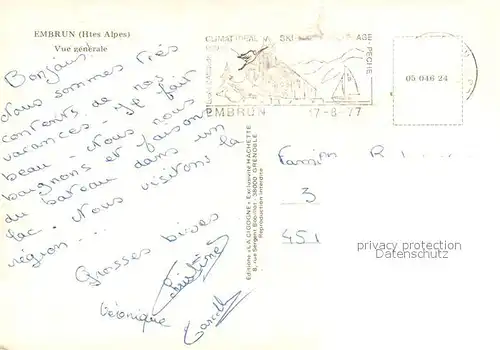 EMBRUN (Htes Alpes)
Vue générale
Bonjour.
Nous sommes très
contents de nos
vacances - Il fait
beau - Nous nous
baignons et faisons
du bateau dans un
lac. Nous visitons la
région...
Grosses bises
Christine
Véronique
Marcelle
CLIMAT IDEAL SKI AGE
PECHE
EMBRUN 17-8-77
05 046 24
Editions «LA CIGOGNE» Exclusivité HACHETTE
8, rue Sergent Bobillot - 38000 GRENOBLE
Reproduction interdite
R
3
451
privacy protection
Datenschutz